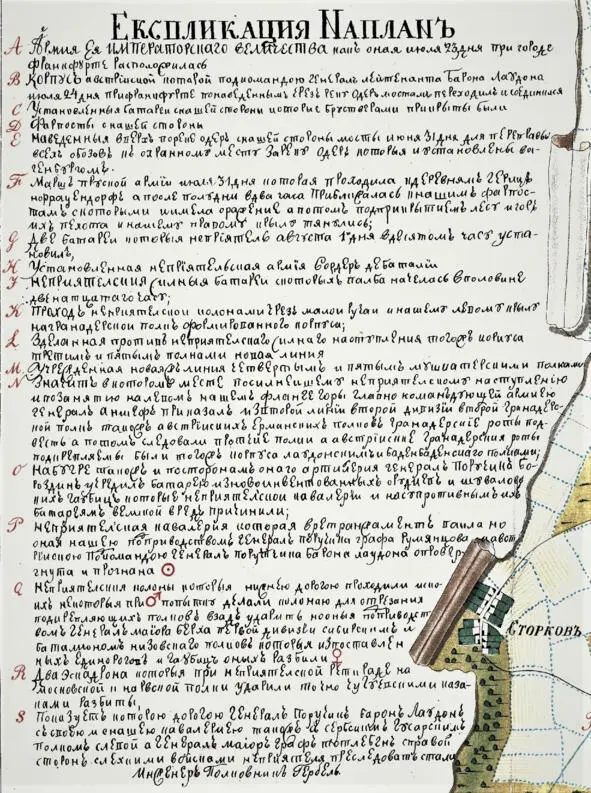 Експликация Напланъ
A Армия Ея ИМПЕРАТОРСКАГО Величества какъ оная июля 23 дня при городе
Франкфурте расположилась
B Корпусъ австрiиской которой подкомандою генералъ леитенанта барона лаудона
июля 24 дня прифранкфурте понаведеннымъ чрезъ реку одеръ мостамъ переходилъ исоединился
C Установленныя батареи снашей стороны которые бруствеpами прикрыты были
D Фарпосты снашей стороны
E Наведенныя вверхъ пореке одеръ снашей стороны мосты июня 31 дня для переправы
всехъ обозовъ по охранному месту зареку одеръ которыя иустановлены ва-
генбургомъ.
F Маршъ пруской армiи июля 31 дня которая проходила кдеревнямъ герицъ
а после полудни вдва часа приближалась кнашимъ фарпос-
тамъ скоторыми имела сражение апотомъ подприкрытиемъ лесу игоръ
ихъ пехота кнашему правому крылу тянулись;
G Две батареи которыя неприятель августа 1 дня вдесятомъ часу уста-
новилъ,
H Установленная неприятельская армiя вордеръ дебаталiи
I Неприятелския силныя батареи скоторыхъ палба началась вполовине
двенатцатаго часу;
K Проходъ неприятелской колонами чрезъ малои ручаи кнашему левому крылу
награнадерской полкъ формированного корпуса;
L Зделанная противъ неприятелскаго силнаго наступления тогожъ корпуса
третимъ ипятымъ полками новая линия
M Учрежденная новаяжъ линия четвертымъ ипятымъ мушкатерскими полками
N Значитъ вкоторомъ месте посилнейшему неприятелскому наступлению
ипозанятию налевомъ нашемъ фланге горы главно командующей армиею
генералъ аншефъ приказалъ извторой линiи второй дивизiи второй гранадер-
ской полкъ такожъ австрiискихъ ерманскихъ полковъ гранадерские роты под-
весть апотомъ следовали протчие полки а австрiйские гранадерския роты
подкрепляемы были тогожъ корпуса лаудонскимъ ибаденбаденскаго полками;
O Набугре такожъ и посторонамъ онаго артилерия генералъ порутчикъ бо-
роздинъ учредилъ батарею изновоинвентованныхъ орудиевъ и шувалов-
скихъ гаубицъ которые неприятелской кавалерiи и насупротивнымъ ихъ
батареямъ великой вредъ причинили;
P Неприятелская кавалерия которая вретраншаментъ вошла но
оная нашею поприводствомъ генералъ порутчика графа Румянцова иавст-
рийскою покомандою генералъ порутчика барона лаудона опровер-
гнута и прогнана ☉
Q Неприятелския колоны которыя нижнею дорогою проходили изко-
ихъ некоторыя при ♂ попытку делали полонаю для отрезания
подкрепляющихъ полковъ взадъ ударить нооныя поприводст-
вомъ генералъ маiора берха первой дивизiи сибирскимъ и
баталиономъ низовского полковъ которыя изпоставлен-
ныхъ единороговъ и гаубицъ оныхъ разбили ♀
R Два эскадрона которыя при неприятелской ретираде на
московской и нарвской полки ударили точно чугуевскими каза-
ками разбиты,
S Показуетъ которою дорогою генералъ порутчикъ баронъ лаудонъ
съсвоею инашею кавалериею такожъ и сербскимъ гусарскимъ
полкомъ слевой а генералъ маиоръ графъ тотлебенъ справой
сторонъ слехкими войсками неприятеля преследовать стали
Инженеръ Полковникъ Гербель
Сторковъ